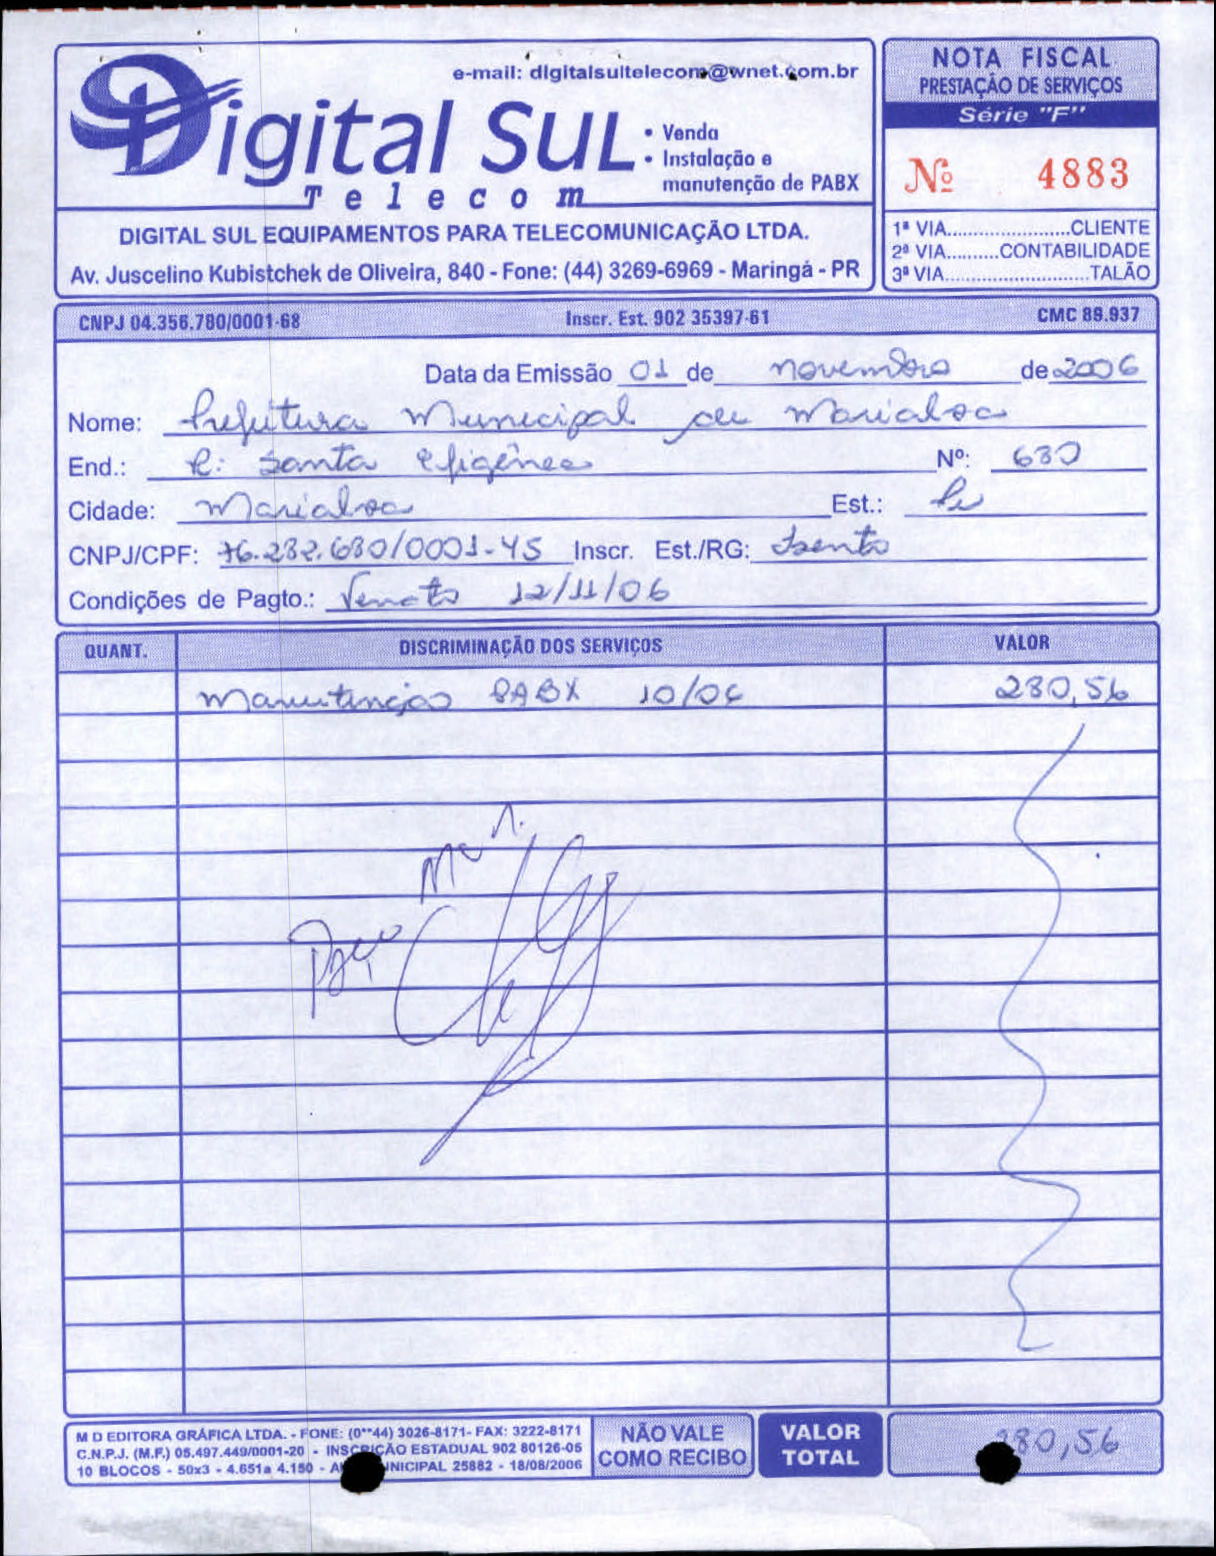 e-mail: digitalsultelecom@wnet.com.br
Digital Sul
Telecom
• Venda
• Instalação e
manutenção de PABX
DIGITAL SUL EQUIPAMENTOS PARA TELECOMUNICAÇÃO LTDA.
Av. Juscelino Kubistchek de Oliveira, 840 - Fone: (44) 3269-6969 - Maringá - PR
NOTA FISCAL
PRESTAÇÃO DE SERVIÇOS
Série "F"
Nº 4883
1ª VIA......................CLIENTE
2ª VIA..........CONTABILIDADE
3ª VIA..........................TALÃO
CNPJ 04.356.780/0001-68 Inscr. Est. 902 35397-61 CMC 89.937
Data da Emissão 01 de novembro de 2006
Nome: Prefeitura Municipal de Marialva
End.: R: Santa Efigênea Nº: 680
Cidade: Marialva Est.: Pr
CNPJ/CPF: 76.282.680/0001-45 Inscr. Est./RG: Isento
Condições de Pagto.: Vencto 12/11/06
QUANT. DISCRIMINAÇÃO DOS SERVIÇOS VALOR
Manutenção PABX 10/06 280,56
M D EDITORA GRÁFICA LTDA. - FONE: (0**44) 3026-8171- FAX: 3222-8171
C.N.P.J. (M.F.) 05.497.449/0001-20 - INSCRIÇÃO ESTADUAL 902 80126-05
10 BLOCOS - 50x3 - 4.651a 4.150 - 25882 - 18/08/2006
NÃO VALE
COMO RECIBO
VALOR
TOTAL
280,56